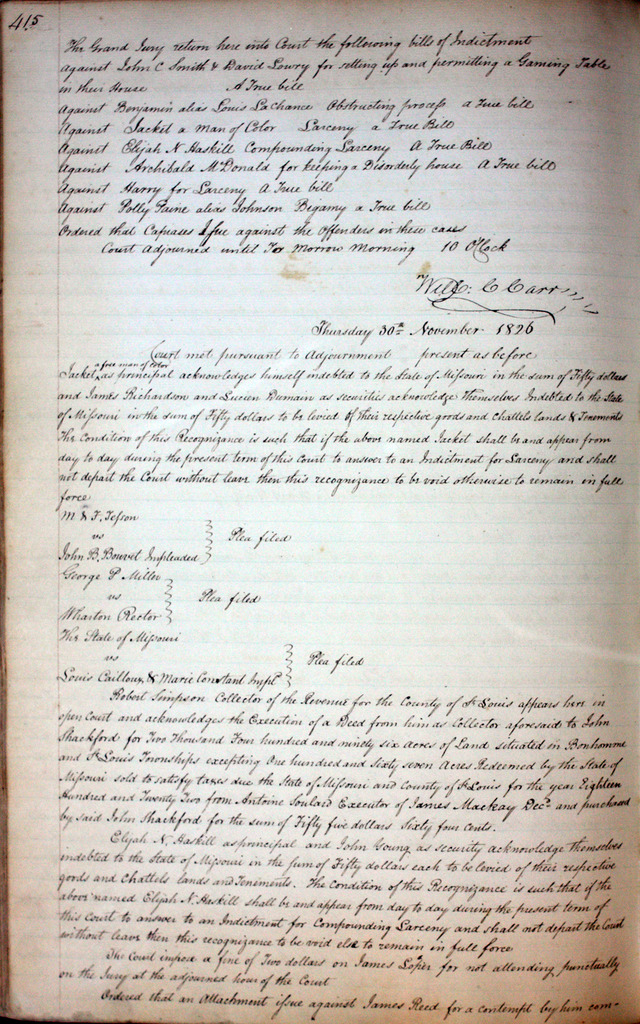 415
The Grand Jury return here into Court the following bills of Indictment
against John C Smith & David Lowry for setting up and permitting a Gaming Table
in their House A True bill
Against Benjamin alias Louis LaChance Obstructing process a True bill
Against Jacket a Man of Color Larceny a True Bill
Against Elijah N. Haskill Compounding Larceny A True Bill
Against Archibald McDonald for keeping a Disorderly house A True bill
Against Harry for Larceny A True bill
Against Polly Paine alias Johnson Bigamy a True bill
Ordered that Capiases Issue against the Offenders in these cases
Court Adjourned until To Morrow Morning 10 OClock
Will: C Carr
Thursday 30th November 1826
Court met pursuant to Adjournment present as before
a free man of color
Jacket as principal acknowledges himself indebted to the State of Missouri in the sum of Fifty dollars
and James Richardson and Lucien Dumain as securities acknowledge themselves Indebted to the State
of Missouri in the sum of Fifty dollars to be levied of their respective goods and Chattels lands & Tenements
The Condition of this Recognizance is such that if the above named Jacket shall be and appear from
day to day during the present term of this Court to answer to an Indictment for Larceny and shall
not depart the Court without leave then this recognizance to be void otherwise to remain in full
force
M & F. Tesson
vs
Plea filed
John B. Bouvet Impleaded
George P Miller
vs
Plea filed
Wharton Rector
The State of Missouri
vs
Plea filed
Louis Cailloux, & Marie Constant Impld
Robert Simpson Collector of the Revenue for the County of St Louis appears here in
open Court and acknowledges the Execution of a Deed from him as Collector aforesaid to John
Shackford for Two Thousand Four hundred and ninety six acres of Land situated in Bonhomme
and St Louis Townships excepting One hundred and Sixty seven Acres Redeemed by the State of
Missouri sold to satisfy taxes due the State of Missouri and County of St Louis for the year Eighteen
Hundred and Twenty Two from Antoine Soulard Executor of James Mackay Decd and purchased
by said John Shackford for the sum of Fifty five dollars Sixty four Cents.
Elijah N. Haskill as principal and John Young as security acknowledge themselves
indebted to the State of Missouri in the sum of Fifty dollars each to be levied of their respective
goods and Chattels lands and Tenements. The Condition of this Recognizance is such that if the
above named Elijah N. Haskill shall be and appear from day to day during the present term of
this Court to answer to an Indictment for Compounding Larceny and shall not depart the Court
without leave then this recognizance to be void else to remain in full force
The Court impose a fine of Two dollars on James Loper for not attending punctually
on the Jury at the adjourned hour of the Court
Ordered that an Attachment issue against James Reed for a contempt by him com-